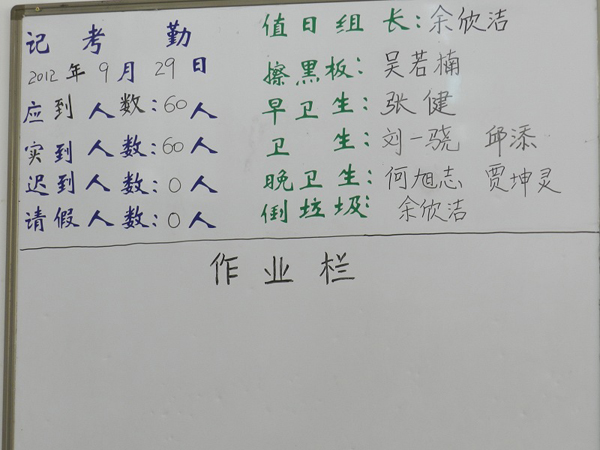 记考勤
2012年9月29日
应到人数:60人
实到人数:60人
迟到人数:0人
请假人数:0人
值日组长:余欣洁
擦黑板:吴若楠
早卫生:张健
卫生:刘一骁 邱添
晚卫生:何旭志 贾坤灵
倒垃圾:余欣洁
作业栏